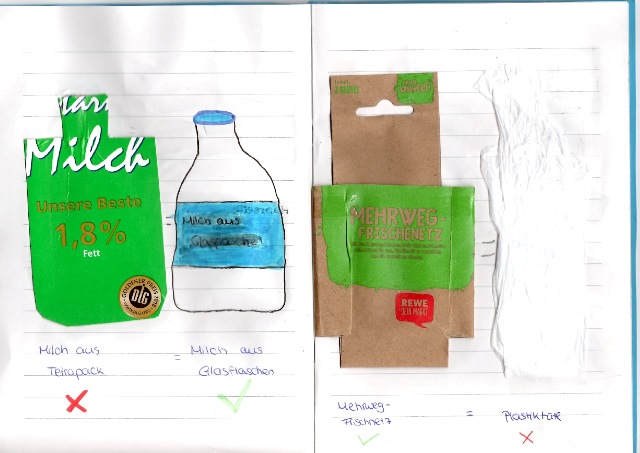 Milch
Unsere Beste
1,8%
Fett
GOLDENER PREIS
DLG
Milch aus
Glasflaschen
Milch aus
Tetrapack
=
Milch aus
Glasflaschen
MEHRWEG-
FRISCHENETZ
REWE
DEIN MARKT
Mehrweg-
Frischnetz
=
Plastiktüte